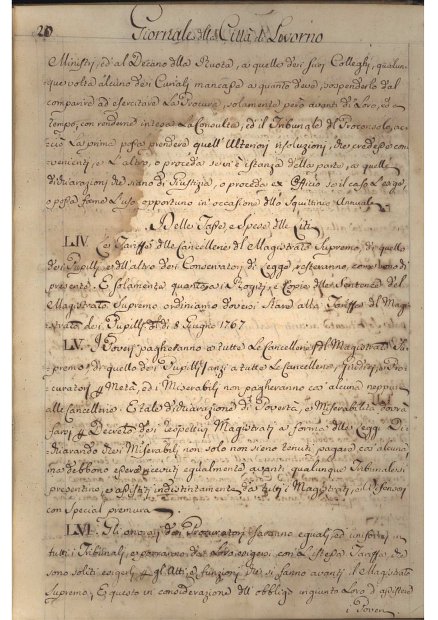 20 Giornale della Città di Livorno
Ministri, ed al Decano della Ruota, a quello dei suoi Colleghi, qualun-
que volta alcuno dei Curiali mancasse a quanto deve, sospenderlo dal
comparire ad esercitare La Procura, solamente però avanti di Loro, ed a
tempo, con renderne intesa La Consulta, ed il Tribunale del Proconsolo, ac-
ciò La prima possa prendere quell' Ulteriori risoluzioni, che crederà con-
venienti, e L'altro, o proceda se vi è istanza della parte, a quelle
dichiarazioni che siano di Giustizia, o proceda ex Officio se il caso Lo esige,
o possa farne L'uso opportuno in occasione dello Squittinio Annuale
Delle Tasse, e Spese delle Liti
LIV Le Tariffe delle Cancellerie del Magistrato Supremo, di quello
dei Pupilli, e dell'altro dei Conservatori di Legge resteranno, come sono di
presente. E solamente quanto a i Rogiti, e Copie delle Sentenze del
Magistrato Supremo ordiniamo doversi stare alla Tariffa del Magi-
strato dei Pupilli del dì 8 Giugno 1767
LV. I Poveri pagheranno a tutte Le Cancellerie del Magistrato Su-
premo, di quello dei Pupilli, anzi a tutte Le Cancellerie, Giudici, e Pro-
curatori p Metà, ed i Miserabili non pagheranno cos'alcuna neppure
alle Cancellerie. E tale dichiarazione di Povertà, e Miserabilità dovrà
farsi p Decreto dei respettivi Magistrati a forma delle Leggi. Di-
chiarando che i Miserabili non solo non sieno tenuti pagare cos'alcuna,
ma debbono essere ricevuti egualmente avanti qualunque Tribunale si
presentino, e assistiti indistintamente da tutti i Magistrati, e Difensori
con Special premura
LVI. Gli onorari dei Procuratori saranno eguali, ed uniformi in
tutti i Tribunali, e potranno da Loro esigersi con L'istessa Tariffa, che
sono soliti esigerli p gli Atti, e funzioni che si fanno avanti il Magistrato
Supremo; E questo in considerazione dell' obbligo ingiunto Loro d'assistere
i Poveri